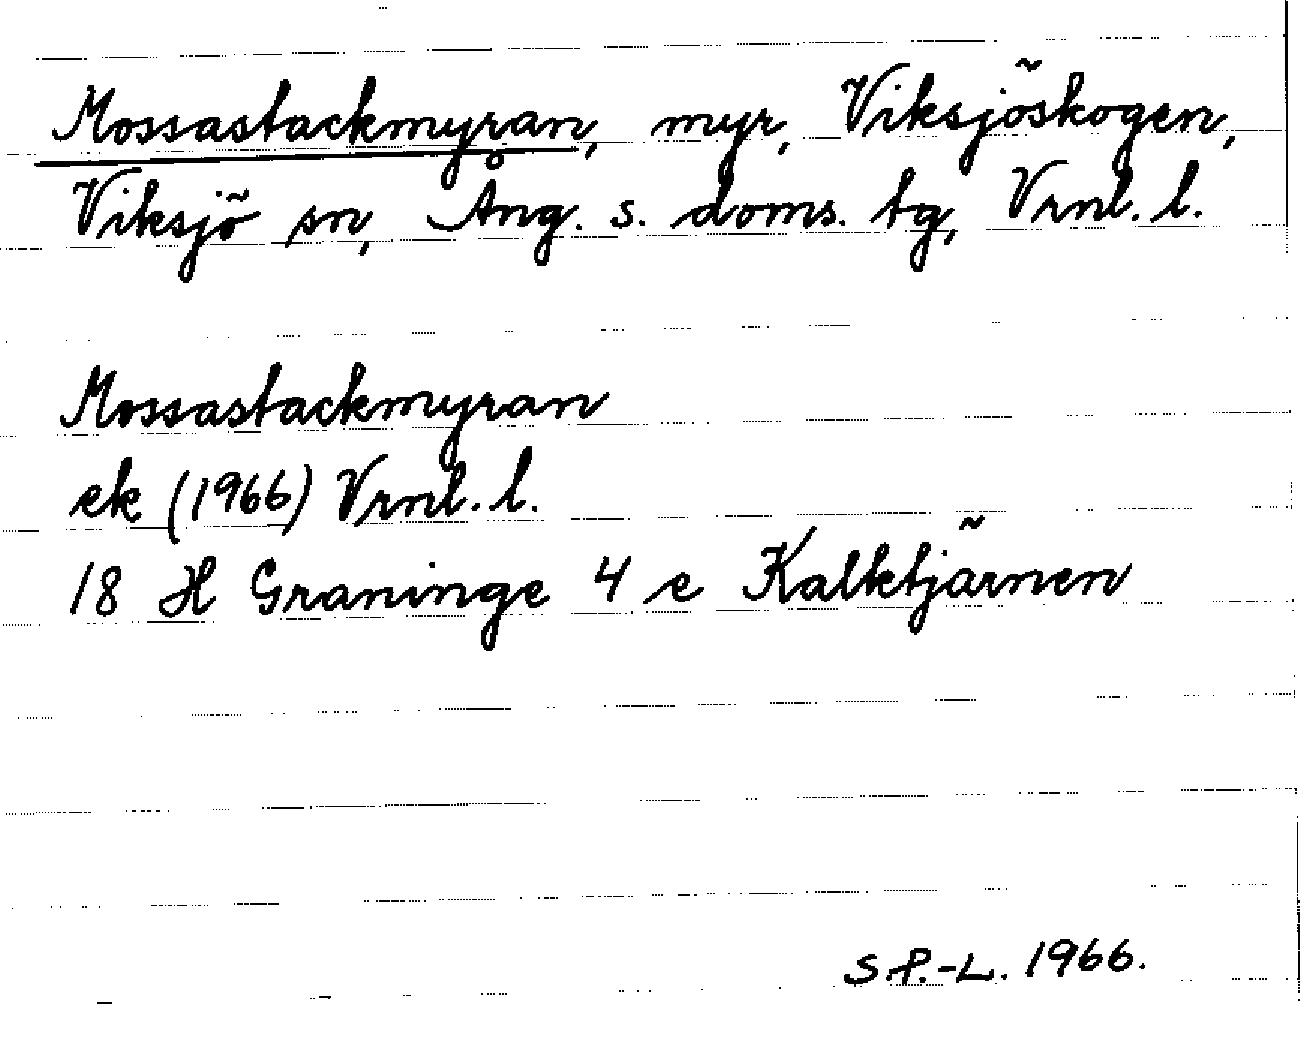 Mossastackmyran, myr, Viksjöskogen,
Viksjö sn, Ång. s. doms. tg, Vrnl. l.
Mossastackmyran
ek (1966) Vrnl. l.
18 H Graninge 4 e Kalktjärnen
S.P.-L. 1966.